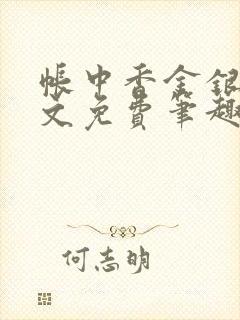 帐中香金银
文免费笔趣
何志明